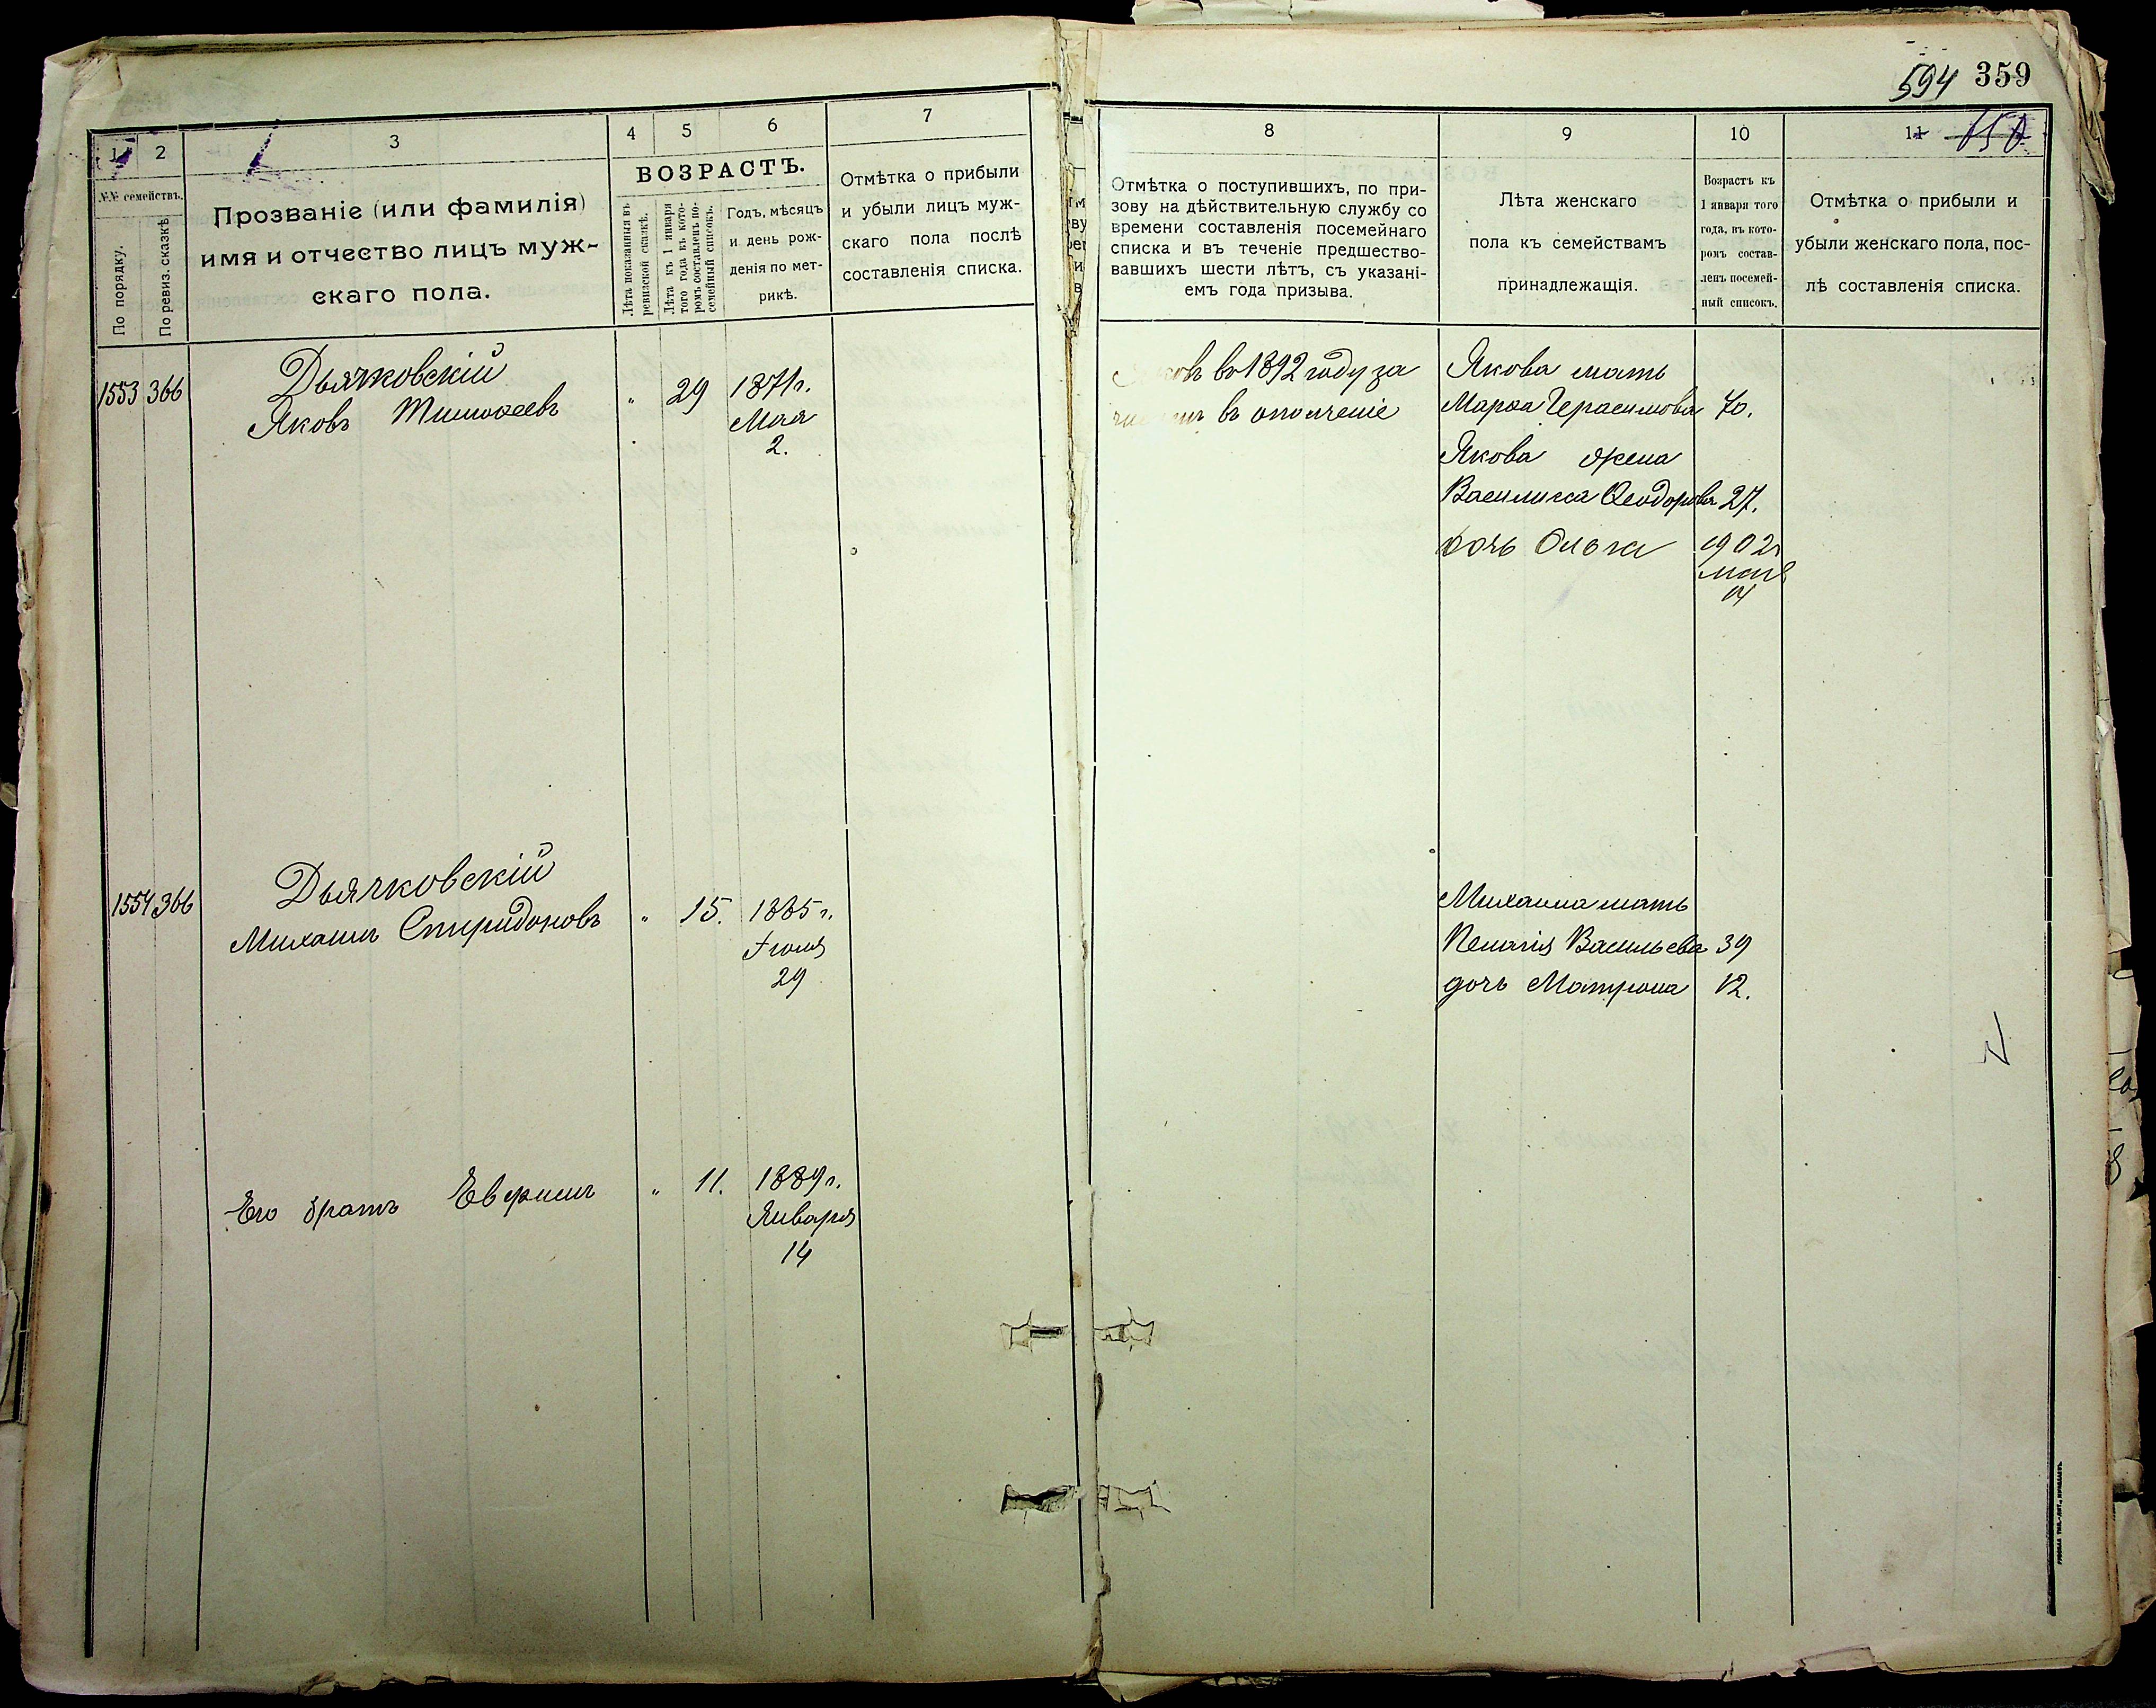 594 359
1 2 3 4 5 6 7
№№ семействъ.
По порядку.
По ревиз. сказкѣ
Прозваніе (или фамилія)
имя и отчество лицъ муж-
скаго пола.
ВОЗРАСТЪ.
Лѣта показанныя въ
ревизской сказкѣ.
Лѣта къ 1 января
того года къ кото-
ромъ составленъ по-
семейный списокъ.
Годъ, мѣсяцъ
и день рож-
денія по мет-
рикѣ.
Отмѣтка о прибыли
и убыли лицъ муж-
скаго пола послѣ
составленія списка.
1553 366
Дьячковскій
Яковъ Тимоѳеевъ
" 29 1871 г.
Мая
2.
1554 366
Дьячковскій
Михаилъ Спиридоновъ
" 15. 1885 г.
Іюля
29
Его братъ
" 11. 1889 г.
Января
14
8 9 10 11
Отмѣтка о поступившихъ, по при-
зову на дѣйствительную службу со
времени составленія посемейнаго
списка и въ теченіе предшество-
вавшихъ шести лѣтъ, съ указані-
емъ года призыва.
Лѣта женскаго
пола къ семействамъ
принадлежащія.
Возрастъ къ
1 января того
года, въ кото-
ромъ состав-
ленъ посемей-
ный списокъ.
Отмѣтка о прибыли и
убыли женскаго пола, пос-
лѣ составленія списка.
въ 1892 году за
въ ополченіе
Якова мать
Марѳа Герасимова 70.
Якова жена
Василисса Ѳеодорова 27.
дочь Ольга 1902 г
мая
14
Михаила мать
Пелагія Васильева 39
дочь Матрона 12.